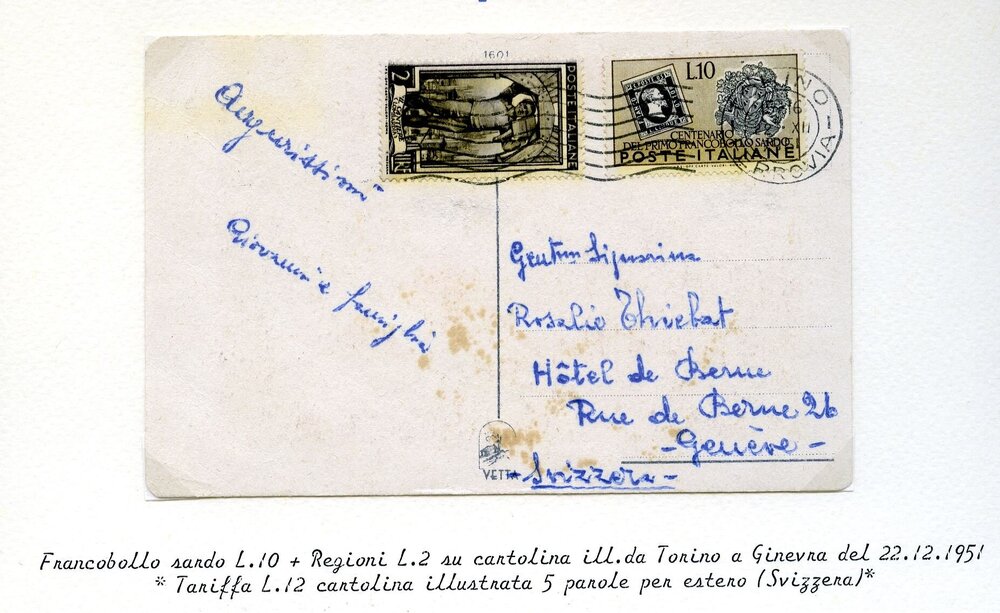 1601
2
POSTE ITALIANE
L.10
CENTENARIO
DEL PRIMO FRANCOBOLLO SARDO
POSTE-ITALIANE
XII
Augurissimi
Giovanni e famiglia
Gent.ma Signorina
Rosalie Thiebat
Hôtel de Berne
Rue de Berne 26
-Genève-
-Svizzera-
VETTA
Francobollo sardo L.10 + Regioni L.2 su cartolina ill.da Torino a Ginevra del 22.12.1951
* Tariffa L.12 cartolina illustrata 5 parole per estero (Svizzera)*